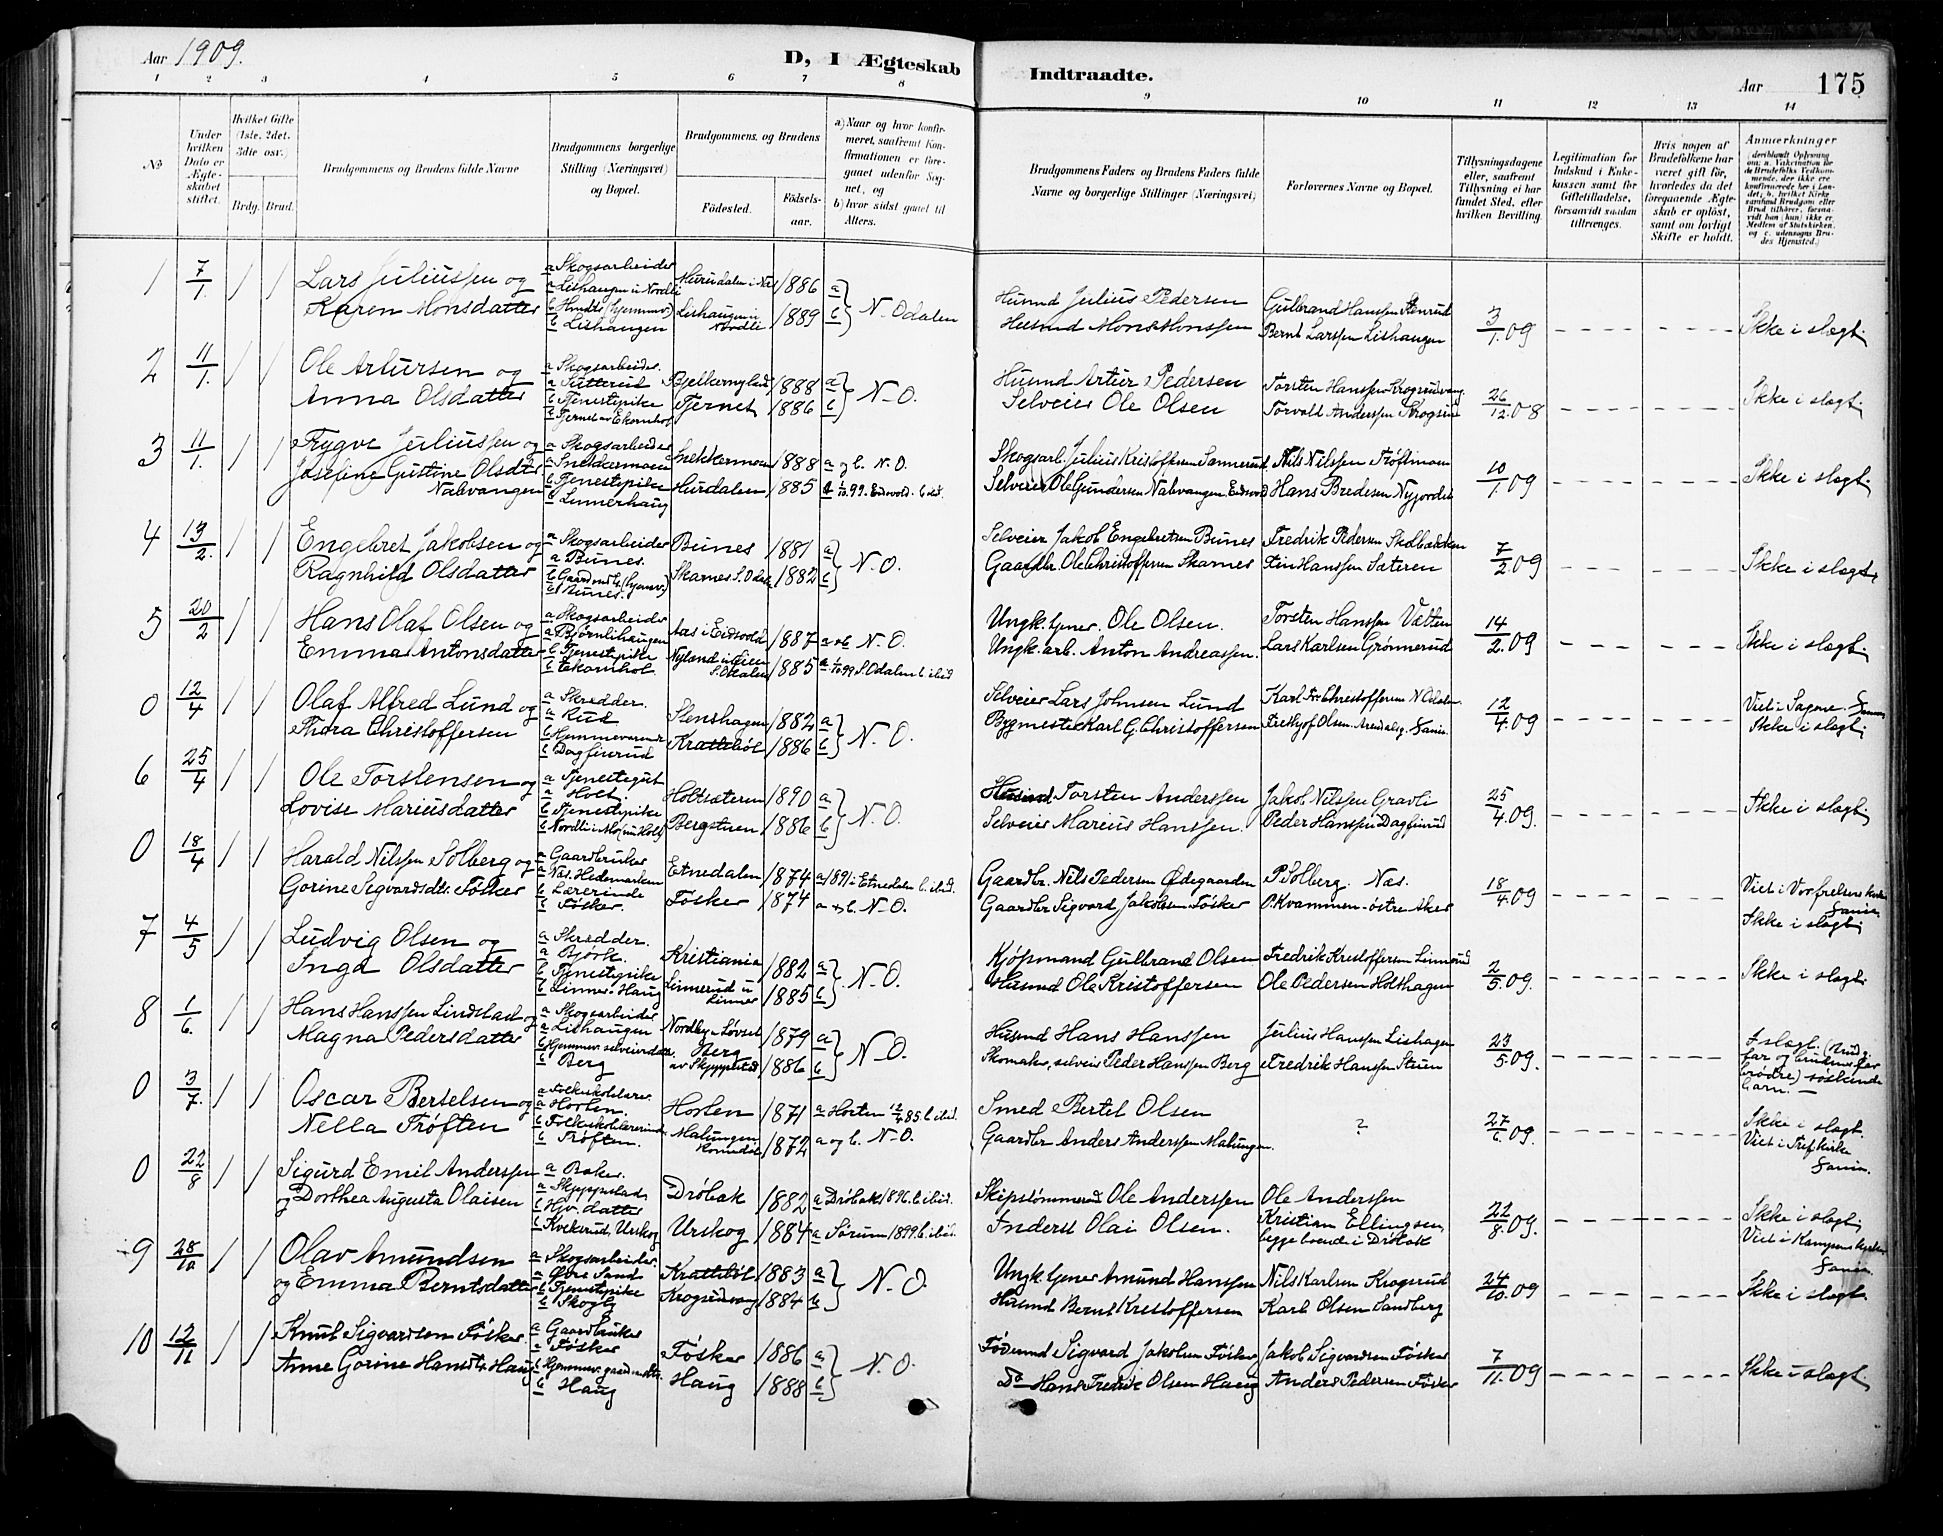 Aar 1909.
D, I Ægteskab
Indtraadte.
Aar 175
1 2 3 4 5 6 7 8 9 10 11 12 13 14
No
Under hvilken Dato er Ægteskabet stiftet.
Hvilket Gifte (1ste, 2det, 3die osv.)
Brdg. Brud.
Brudgommens og Brudens fulde Navne
Brudgommens borgerlige Stilling (Næringsvei) og Bopæl.
Brudgommens, og Brudens
Fødested.
Fødselsaar.
a) Naar og hvor konfirmeret, saafremt Konfirmationen er foregaaet udenfor Sognet, og
b) hvor sidst gaaet til Alters.
Brudgommens Faders og Brudens Faders fulde Navne og borgerlige Stillinger (Næringsvei)
Forlovernes Navne og Bopæl.
Tillysningsdagene eller, saafremt Tillysning ei har fundet Sted, efter hvilken Bevilling.
Legitimation for Indskud i Enkekassen samt for Giftetilladelse, forsaavidt saadan tiltrænges.
Hvis nogen af Brudefolkene har været gift før, hvorledes da det foregaaende Ægteskab er opløst, samt om lovligt Skifte er holdt.
Anmærkninger
1 7/1. / / Lars Juliussen og a Skogsarbeider 1886 a
a Lishaugen i Nordli
Karen Monsdatter b Lishaugen Lishaugen i Nordli 1889 b N. Odalen
Husmd Julius Pedersen Gulbrand Hanssen Stenrud 3/1.09 Ikke i slægt.
Husmd Mons Monssen Bernt Larssen Lishaugen
2 11/1. / / Ole Artursen og a Skogsarbeider. 1888 a
Anna Olsdatter b Tjenestepike Tjernet 1886 b N.O.
Husmd Artur Pedersen Torsten Hanssen Krogsrudvang 26/12.08 Ikke i slægt.
Selveier Ole Olsen Torvald Anderssen Krogsrud
3 11/1. / / Trygve Juliussen og a Skogsarbeider Snekkermoen 1888 a og b. N.O.
a Snekkermoen
Josefine Gustine Olsdtr b Tjenestepike Hurdalen 1885 a 1/10 99. Eidsvold. b ibid.
Nabvangen b Linnerhaug
Skogsarb. Julius Kristoffersen Sannerud Nils Nilssen Trøftmoen 10/1.09 Ikke i slægt.
Selveier Ole Gundersen Nabvangen Eidsvold Hans Bredesen Nyjordet
4 13/2. / / Engebret Jakobsen og a Skogsarbeider Bunes 1881 a
a Bunes.
Ragnhild Olsdatter b Bunes. Skarnes S. Odal 1882 b N.O.
Selveier Jakob Engebretsen Bunes Fredrik Pedersen Skolbækken 7/2.09 Ikke i slægt.
Gaardbr. Ole Christoffersen Skarnes Finn Hanssen Sæteren
5 20/2 / / Hans Olaf Olsen og a Skogsarbeider Aas i Eidsvold 1887 a og b N.O.
a Bjørnlihaugen
Emma Antonsdatter b Tjenestepike 1885 a 1/10 99 S. Odalen b ibid
b Ekornhol
Ungk. tjener. Ole Olsen. Torsten Hanssen Vætten 14/2.09 Ikke i slægt.
Ungk. arb. Anton Andreassen. Lars Karlsen Grønnerud
0 12/4 / / Olaf Alfred Lund og a Skrædder. Stenshagen 1882 a
a Rud
Thora Christoffersen b Hjemmeværende Kratebøl 1886 b N.O.
b Dagfinrud
Selveier Lars Johnsen Lund Karl Fr. Christoffersen N. Odalen 12/4.09 Viet i Sagene.
Bygmester Karl G. Christoffersen Fritjof Olsen. Arendalsg. Ikke i slægt.
6 25/4 / / Ole Torstensen og a Tjenestegut Holtsæteren 1890 a
a Holt.
Lovise Mariusdatter b Tjenestepike Bergstuen 1886 b N.O.
Husmd. Torsten Anderssen Jakob Nilssen Gravli 25/4.09. Ikke i slægt.
Selveier Marius Hanssen. Peder Hanssen Dagfinrud
0 18/4 / / Harald Nilssen Solberg og a Gaardbruker Etnedalen 1874 a 1891 i Etnedalen b. ibid.
a Næs. Hedemarken
Gorine Sigvardsdtr. Føsker b Lærerinde Føsker 1874 a og b. N.O.
b Føsker.
Gaardbr. Nils Pedersen Ødegaarden P. Solberg. Næs. 18/4.09 Viet i Vor frelsers kirke
Gaardbr Sigvard Jakobsen Føsker P. Kvammen - østre Aker Ikke i slægt.
7 4/5 / / Ludvig Olsen og a Skrædder. Kristiania 1882 a
a Bjørk.
Inga Olsdatter b Tjenestepike Linnerud u Linner 1885 b N.O.
b Linner-Haug
Kjøpmand Gulbrand Olsen Fredrik Kristoffersen Linnerud 2/5.09. Ikke i slægt
Husmd Ole Kristoffersen Ole Pedersen Holthagen
8 1/6. / / Hans Hanssen Lindstad og a Skogsarbeider Nordbye Løvset 1879 a
a Lishaugen
Magna Pedersdatter b Hjemmev. selveierdatt. Berg av Skyppelstad 1886 b N.O.
b Berg
Husmd Hans Hanssen Julius Hanssen Lishagen 23/5.09. I slægt.
Skomaker, selveier Peder Hanssen Berg Fredrik Hanssen Stuen
0 3/7. / / Oscar Bertelsen og a Folkeskolelærer Horten 1871 a Horten 12/4 85 b ibid.
a Horten.
Nella Trøften b Folkeskolelærerinde Malungen Romedal 1872 a og b. N.O.
b Trøften.
Smed Bertel Olsen ? 27/6.09. Ikke i slægt.
Gaardbr Anders Anderssen Malungen. Viet i Trefkirke
0 22/8 / / Sigurd Emil Anderssen a Baker. Drøbak 1882 a Drøbak 1896. b. ibid.
a Skyppelstad
og Dorthea Augusta Olaisen b Hjv. datter Urskog 1884 a Sørum 1899. b. ibid.
b Kvekerud, Urskog
Skipstømmermd Ole Anderssen Ole Anderssen 22/8.09. Ikke i slægt.
Inderst Olai Olsen. Kristian Ellingsen, begge boende i Drøbak Viet i Kampens kirke
9 28/10 / / Olav Amundsen a Skogsarbeider. Kratebøl 1883 a
a Øvre Sand
og Emma Berntsdatter b Tjenestepike Krogsrudvang 1884 b N.O.
b Skogly
Ungk. tjener Amund Hanssen Nils Karlsen Krogsrud 24/10.09 Ikke i slægt.
Husmd Bernt Kristoffersen Karl Olsen Sandberg
10 12/11 / / Knut Sigvardsen Føsker a Gaardbruker Føsker 1886 a
a Føsker
Anne Gorine Hansdtr Haug b Hjemmev. gaardmdtr. Haug 1888 b N.O.
b Haug
Føderaad Sigvard Jakobsen Føsker Jakob Sigvardsen Føsker 7/11.09 Ikke i slægt.
Do Hans Fredrik Olsen Haug Anders Pedersen Føsker